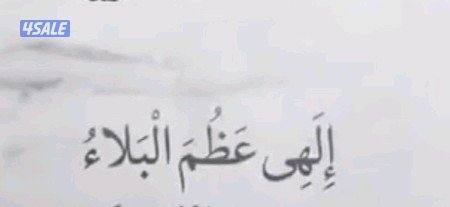 4SALE
إِلَهِى عَظُمَ الْبَلاءُ